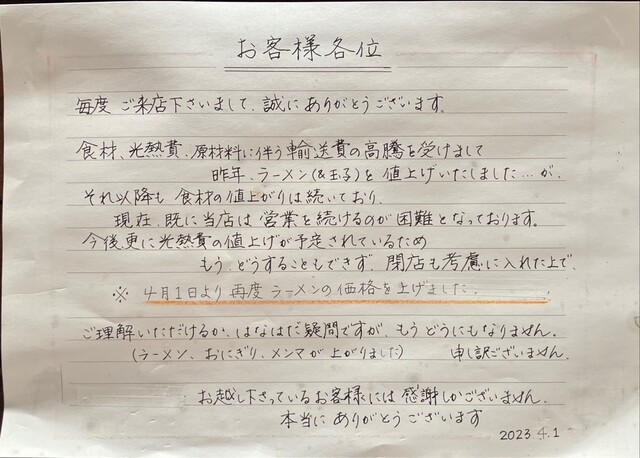 お客様各位
毎度 ご来店下さいまして、誠にありがとうございます。
食材、光熱費、原材料に伴う輸送費の高騰を受けまして
昨年、ラーメン(&玉子)を値上げいたしました…が、
それ以降も 食材の値上がりは続いており、
現在、既に当店は 営業を続けるのが 困難となっております。
今後更に光熱費の値上げが予定されているため
もう、どうすることもできず、閉店も考慮に入れた上で、
※ 4月1日より再度 ラーメンの価格を上げました。
ご理解いただけるか、はなはだ疑問ですが、もう どうにもなりません。
(ラーメン、おにぎり、メンマが上がりました) 申し訳ございません。
お越し下さっているお客様には 感謝しかございません。
本当に ありがとうございます
2023.4.1